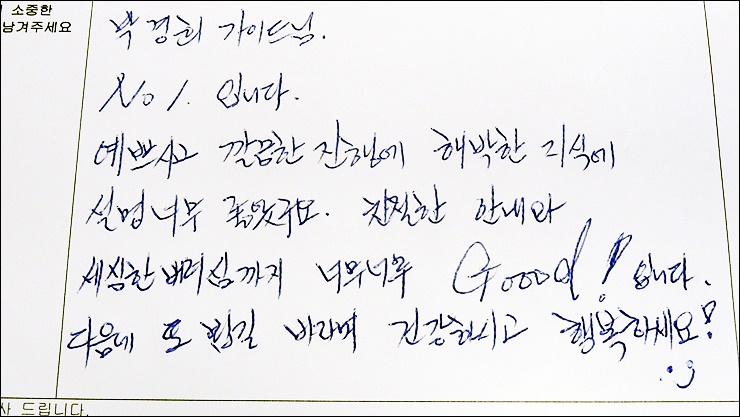 소중한
남겨주세요
박경희 가이드님.
No 1. 입니다.
예쁘시고 깔끔한 진행에 해박한 지식에
설명 너무 좋았구요. 친절한 안내와
세심한 배려심까지 너무너무 Goood! 입니다.
다음에 또 뵙길 바라며 건강하시고 행복하세요!
:)
사 드립니다.